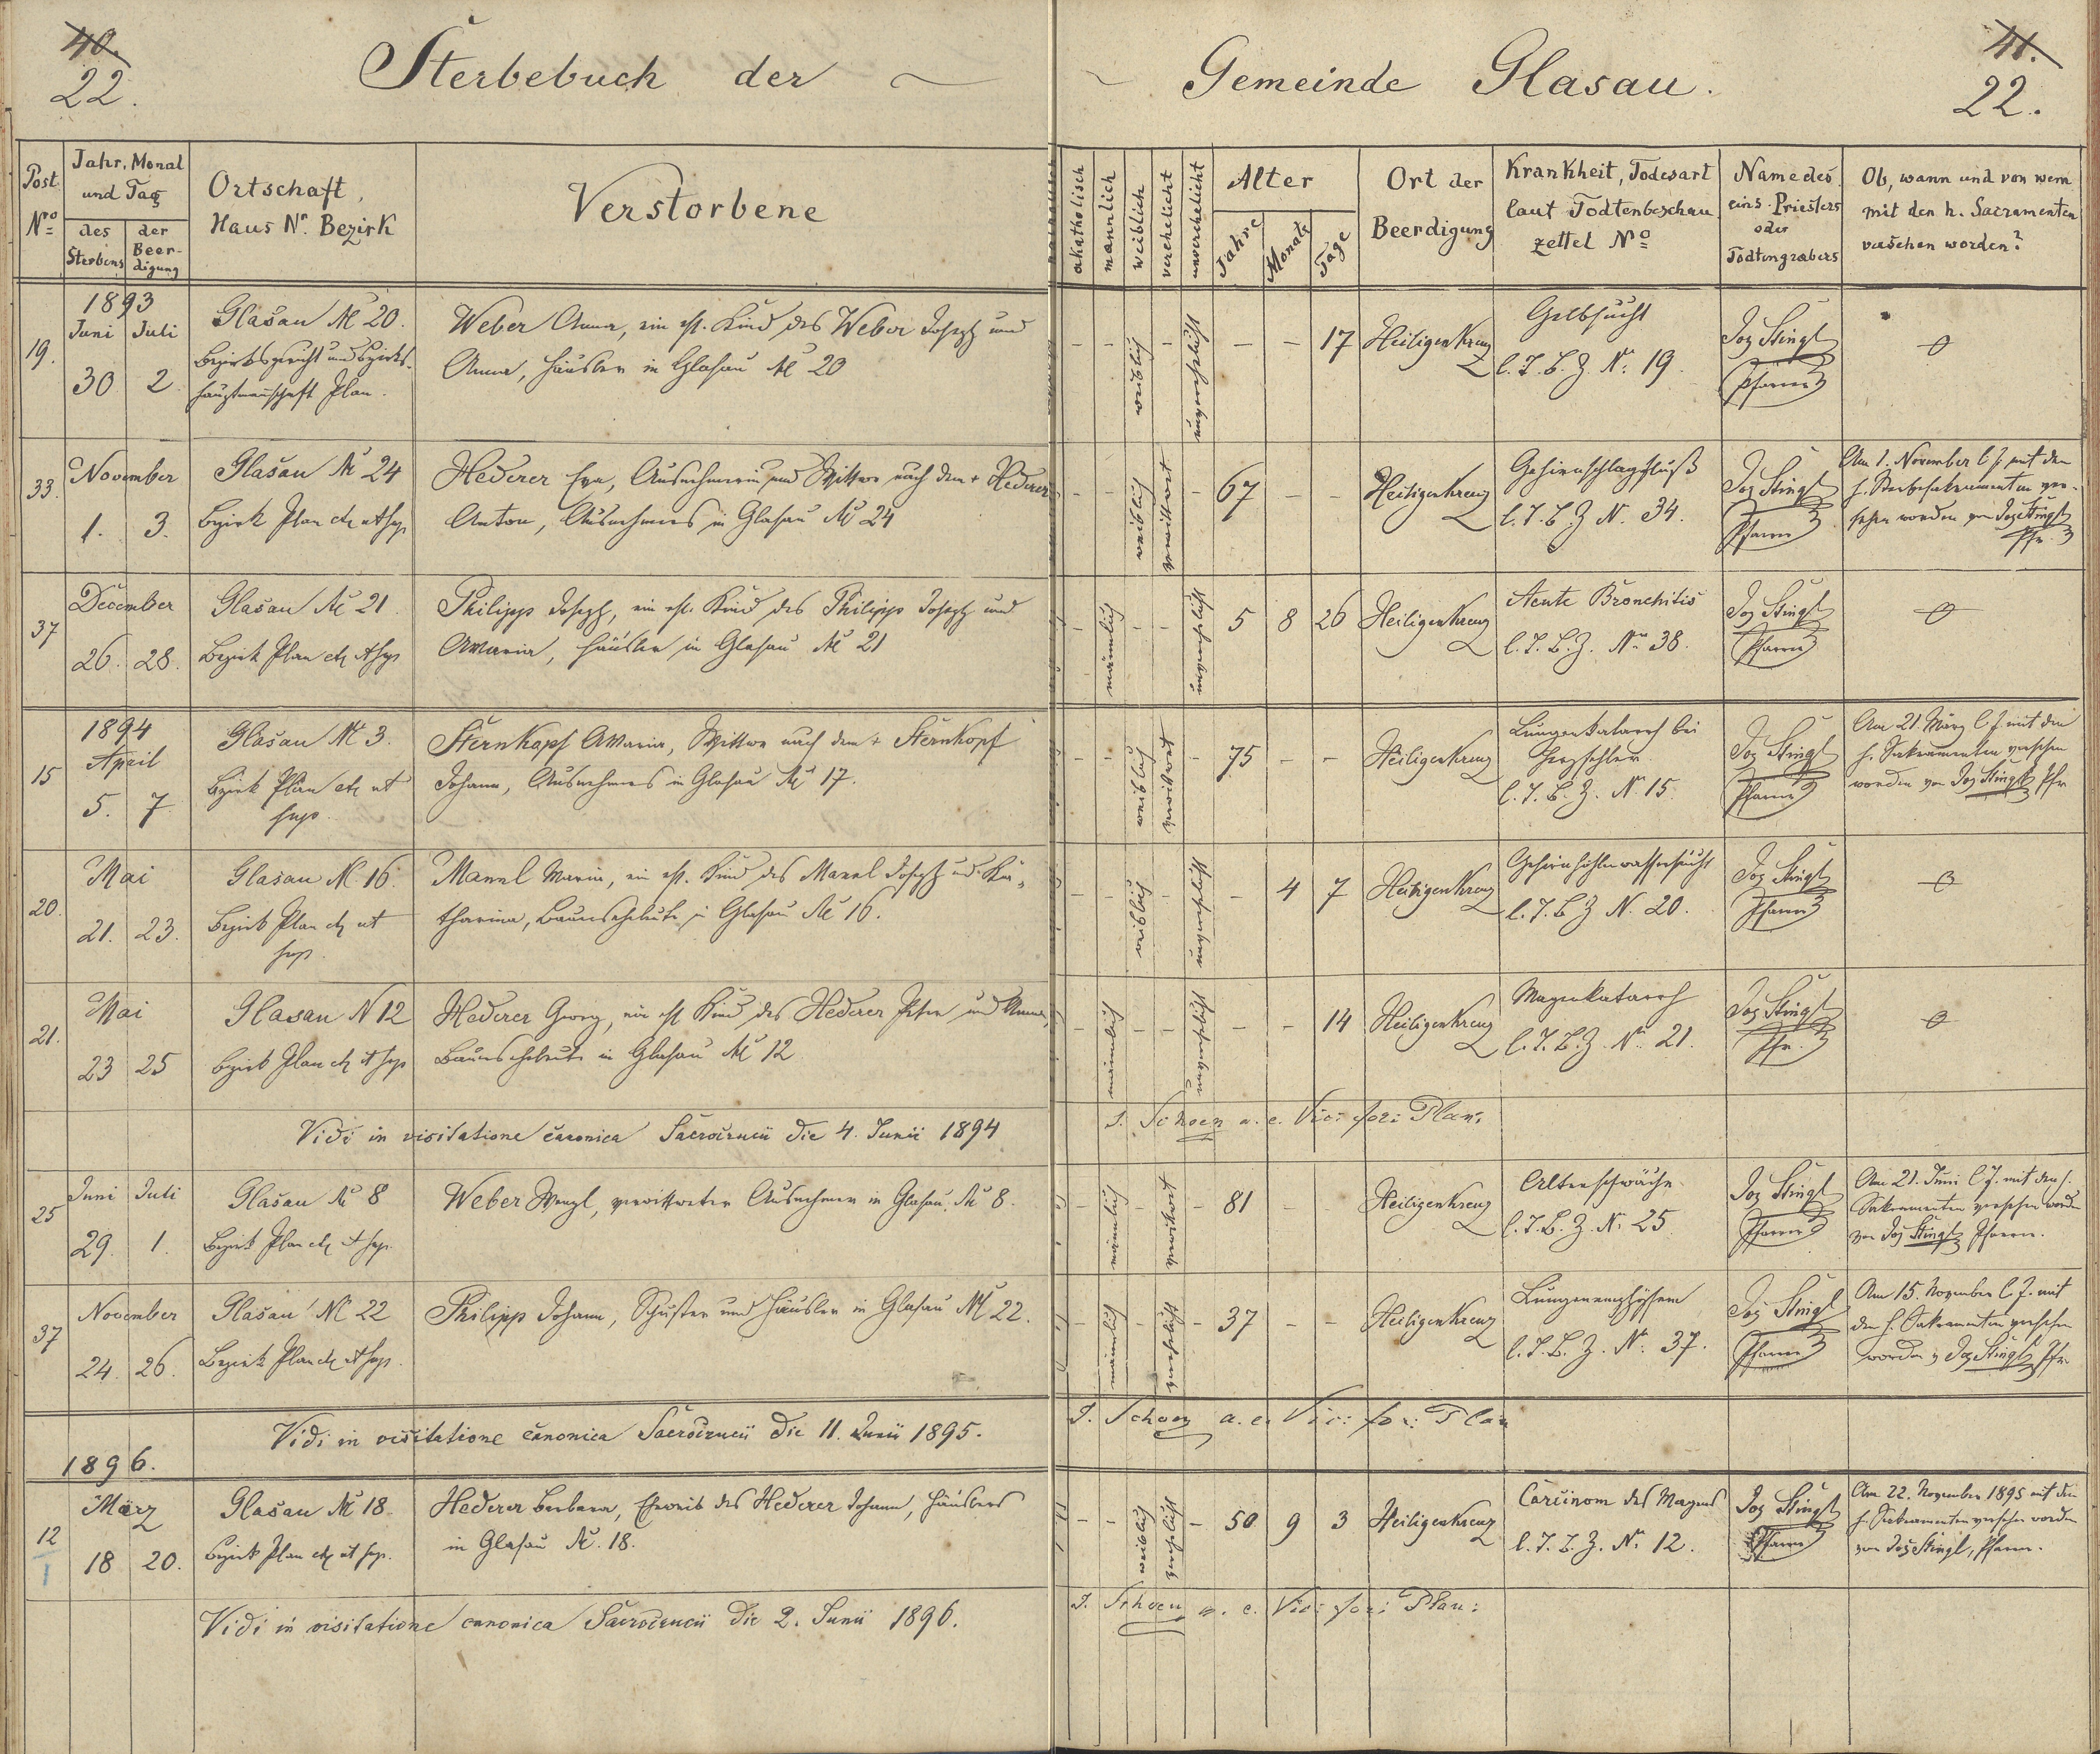 40.
22.
Sterbebuch der
Gemeinde Glasau.
41.
22.
Post Nro
Jahr, Monat und Tag
des Sterbens
der Beerdigung
Ortschaft,
Haus Nr. Bezirk
Verstorbene
akatholisch
männlich
weiblich
verehelicht
unverehelicht
Alter
Jahre
Monate
Tage
Ort der
Beerdigung
Krankheit, Todesart
laut Todtenbeschau
zettel Nro
Name des
eins. Priesters
oder
Todtengräbers
Ob, wann und von wem
mit den h. Sacramenten
versehen worden?
19.
1893
Juni Juli
30 2.
Glasau № 20.
Bezirksgericht und Bezirks-
hauptmannschaft Plan.
Weber Anna, ein ehl. Kind des Weber Joseph und
Anna, Häusler in Glasau № 20
- - weiblich - unverehelicht - - 17
Heiligenkreuz
Gelbsucht
l. T. B. Z. Nr. 19.
Jos Stingl
Pfarrer
0
33.
November
1. 3.
Glasau № 24
Bezirk Plan etc ut sup.
Hederer Eva, Ausnehmerin und Wittwe nach dem + Hederer
Anton, Ausnehmers in Glasau № 24
- - weiblich verwittwet - 67 - -
Heiligenkreuz
Gehirnschlagfluß
l. T. B. Z. N. 34.
Jos Stingl
Pfarrer
Am 1. November l. J. mit den
h. Sterbesakramenten ver-
sehen worden von Jos Stingl
Pfr.
37
December
26. 28.
Glasau № 21
Bezirk Plan etc ut sup
Philipp Joseph, ein ehl. Kind des Philipp Joseph und
Maria, Häusler in Glasau № 21
- männlich - - unverehelicht 5 8 26
Heiligenkreuz
Acute Bronchitis
l. T. B. Z. Nr. 38.
Jos Stingl
Pfarrer
0
15
1894
April
5. 7
Glasau № 3.
Bezirk Plan etc ut
sup.
Sternkopf Maria, Wittwe nach dem + Sternkopf
Johann, Ausnehmers in Glasau № 17.
- - weiblich verwittwet - 75 - -
Heiligenkreuz
Lungenkatarrh bei
Herzfehler
l. T. B. Z. N. 15.
Jos Stingl
Pfarrer
Am 21. März l. J. mit den
h. Sakramenten versehen
worden von Jos Stingl, Pfr
20.
Mai
21. 23.
Glasau N. 16.
Bezirk Plan etc ut
sup.
Mannl Maria, ein ehl. Kind des Mannl Joseph u. Ka-
tharina, Bauerseheleute in Glasau № 16.
- - weiblich - unverehelicht - 4 7
Heiligenkreuz
Gehirnhöhlenwassersucht
l. T. B. Z. N. 20.
Jos Stingl
Pfarrer
0
21.
Mai
23 25
Glasau N 12
Bezirk Plan etc ut sup
Hederer Georg, ein ehl Kind des Hederer Peter und Anna,
Bauerseheleute in Glasau № 12
- männlich - - unverehelicht - - 14
Heiligenkreuz
Magenkatarrh
l. T. B. Z. Nr. 21.
Jos Stingl
Pfr.
0
Vidi in visitatione canonica Sacrocrucii die 4. Junii 1894
J. Schoen a. e. Vic: for: Plan:
25
Juni Juli
29. 1.
Glasau № 8
Bezirk Plan etc ut sup.
Weber Wenzl, verwittweter Ausnehmer in Glasau № 8.
- männlich - verwittwet - 81 - -
Heiligenkreuz
Altersschwäche
l. T. B. Z. N. 25
Jos Stingl
Pfarrer
Am 21. Juni l. J. mit den h.
Sakramenten versehen worden
von Jos Stingl, Pfarrer.
37
November
24. 26.
Glasau № 22
Bezirk Plan etc ut sup.
Philipp Johann, Schuster und Häusler in Glasau № 22.
- männlich - verehelicht - 37 - -
Heiligenkreuz
Lungenemphysem
l. T. B. Z. Nr. 37.
Jos Stingl
Pfarrer
Am 15. November l. J. mit
den h. Sakramenten versehen
worden v. Jos Stingl, Pfr.
Vidi in visitatione canonica Sacrocrucii die 11. Junii 1895.
J. Schoen a. e. Vic: for: Plan
1896.
12
1
März
18 20.
Glasau № 18
Bezirk Plan etc ut sup.
Hederer Barbara, Eheweib des Hederer Johann, Häuslers
in Glasau №. 18.
- - weiblich verehelicht - 50 9 3
Heiligenkreuz
Carcinom des Magens
l. T. B. Z. Nr. 12.
Jos Stingl
Pfarrer
Am 22. November 1895 mit den
h. Sakramenten versehen worden
von Jos Stingl, Pfarrer.
Vidi in visitatione canonica Sacrocrucii die 2. Junii 1896.
J. Schoen a. e. Vic: for: Plan: